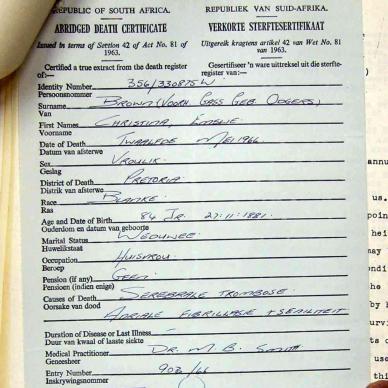 REPUBLIC OF SOUTH AFRICA.
REPUBLIEK VAN SUID-AFRIKA.
ABRIDGED DEATH CERTIFICATE
VERKORTE STERFTESERTIFIKAAT
Issued in terms of Section 42 of Act No. 81 of 1963.
Uitgereik kragtens artikel 42 van Wet No. 81 van 1963.
Certified a true extract from the death register of:—
Gesertifiseer 'n ware uittreksel uit die sterfte-register van:—
Identity Number 356/330875W
Persoonsnommer
Surname BROWN (VOORH. GASS GEB. ODGERS)
Van
First Names CHRISTINA, EMELIE
Voorname
Date of Death TWAALFDE MEI 1966
Datum van afsterwe
Sex VROULIK
Geslag
District of Death PRETORIA
Distrik van afsterwe
Race BLANKE
Ras
Age and Date of Birth 84 JR. 27:11:1881
Ouderdom en datum van geboorte
Marital Status WEDUWEE
Huwelikstaat
Occupation HUISVROU
Beroep
Pension (if any) GEEN
Pensioen (indien enige)
Causes of Death SEREBRALE TROMBOSE
Oorsake van dood
FIBRILLASIE + SENILITEIT
Duration of Disease or Last Illness
Duur van kwaal of laaste siekte
Medical Practitioner DR. M. B. SMITH
Geneesheer
Entry Number 908/66
Inskrywingsnommer